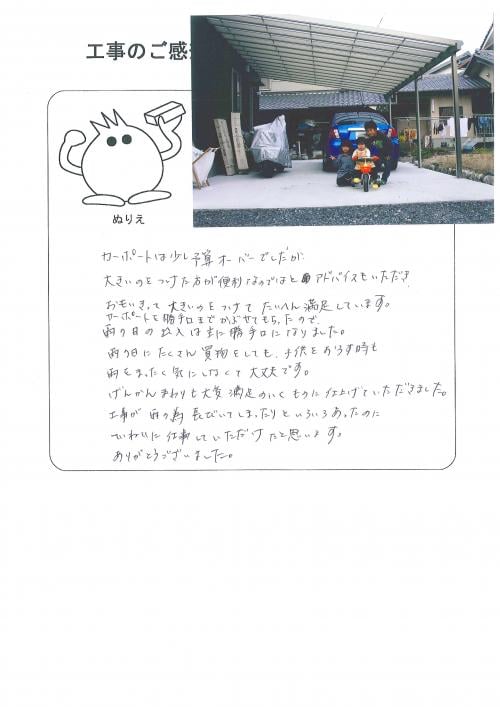 工事のご感
ぬりえ
カーポートは少し予算オーバーでしたが
大きいのをつけた方が便利なのではとアドバイスもいただき
おもいきって大きいのをつけてたいへん満足しています。
カーポートを勝手口までかぶせてもらったので、
雨の日の出入は主に勝手口になりました。
雨の日にたくさん買物をしても、子供をおろす時も
雨をまったく気にしなくて大丈夫です。
げんかんまわりも大変満足のいくものに仕上げていただきました。
工事が雨の為長びいてしまったりといろいろあったのに
ていねいに仕事していただけたと思います。
ありがとうございました。